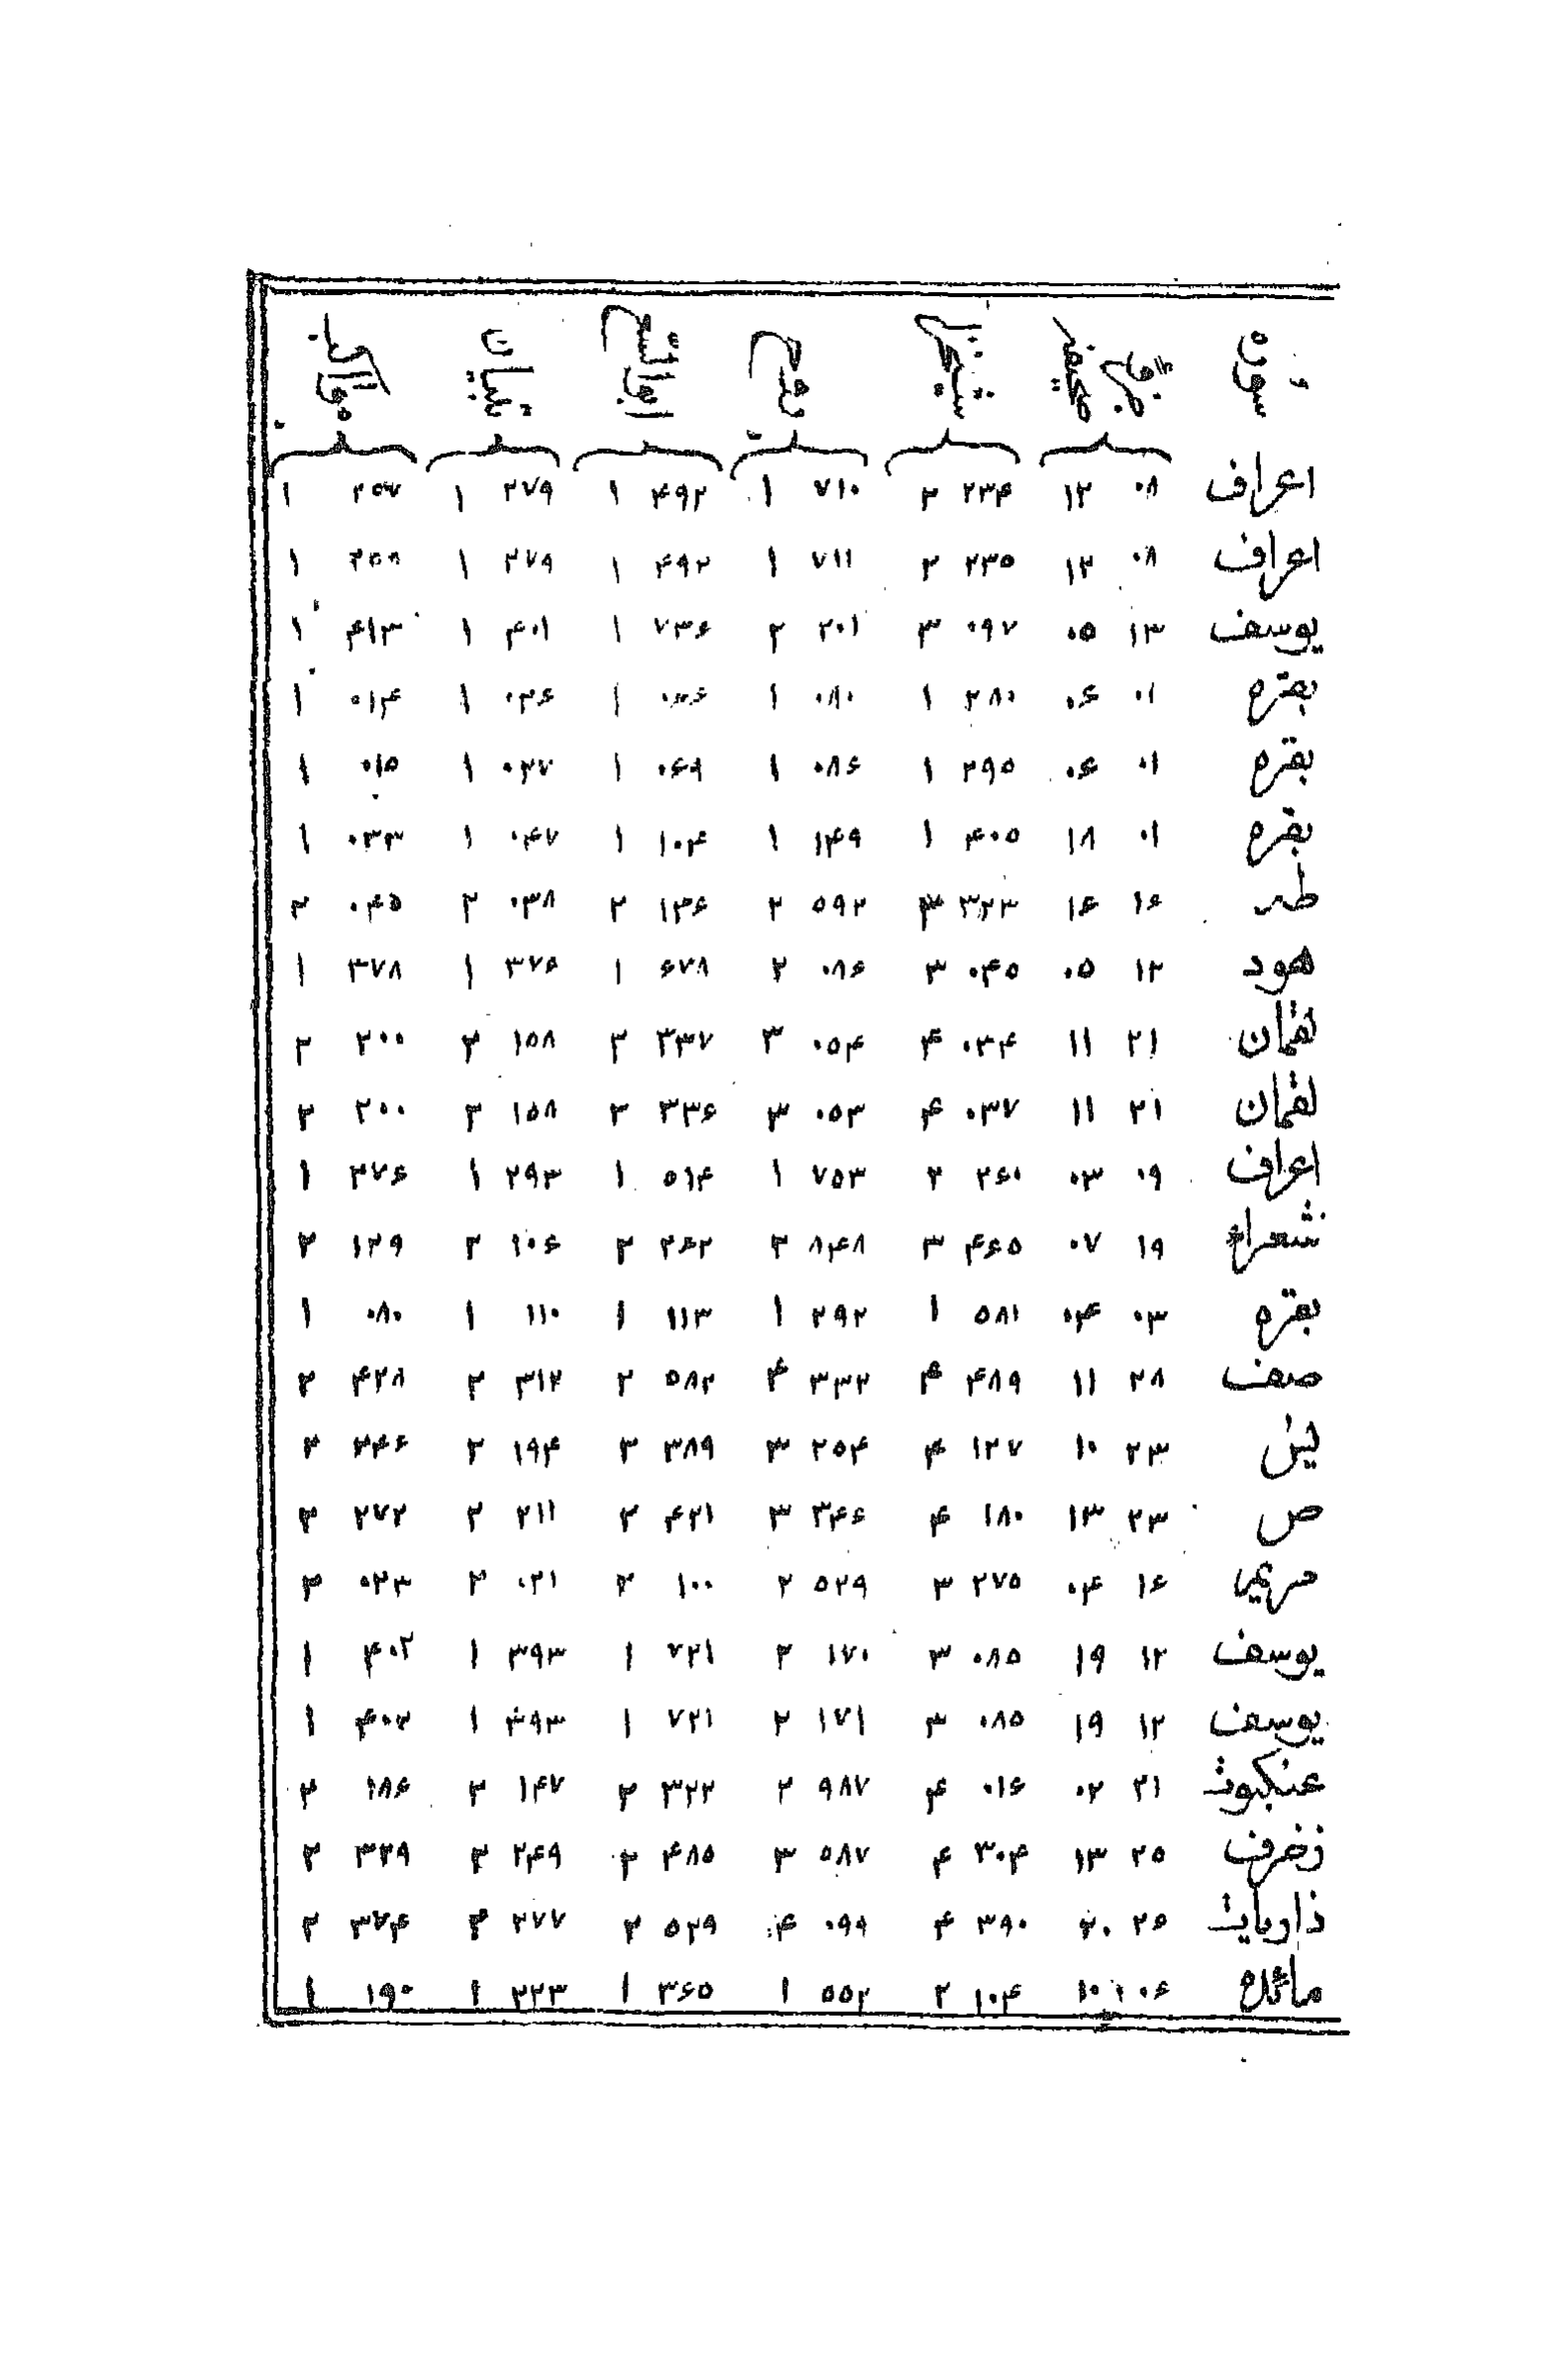 سوره
اعراف ۰۸ ۱۲ ۲۳۴ ۲ ۷۱۰ ۱ ۴۹۲ ۱ ۲۷۹ ۱ ۱
اعراف ۰۸ ۱۲ ۲۳۵ ۲ ۷۱۱ ۱ ۴۹۲ ۱ ۲۷۹ ۱ ۱
یوسف ۱۳ ۰۵ ۰۹۷ ۳ ۲۰۱ ۲ ۷۳۶ ۱ ۴۰۱ ۱ ۴۱۳ ۱
بقره ۰۱ ۰۶ ۲۸۰ ۱ ۰۸۰ ۱ ۱ ۰۲۶ ۱ ۰۱۴ ۱
بقره ۰۱ ۰۶ ۲۹۵ ۱ ۰۸۶ ۱ ۰۶۹ ۱ ۰۲۷ ۱ ۰۱۵ ۱
بقره ۰۱ ۱۸ ۴۰۵ ۱ ۱۴۹ ۱ ۱۰۴ ۱ ۰۴۷ ۱ ۰۳۳ ۱
طه ۱۶ ۱۶ ۳۲۳ ۳ ۵۹۲ ۲ ۱۳۶ ۲ ۰۳۸ ۲ ۰۴۵ ۲
هود ۱۲ ۰۵ ۰۴۵ ۳ ۰۸۶ ۲ ۶۷۸ ۱ ۳۷۶ ۱ ۳۷۸ ۱
لقمان ۲۱ ۱۱ ۰۳۴ ۴ ۰۵۴ ۳ ۳۳۷ ۲ ۱۵۸ ۲ ۲۰۰ ۲
لقمان ۲۱ ۱۱ ۰۳۷ ۴ ۰۵۳ ۳ ۳۳۶ ۲ ۱۵۸ ۲ ۲۰۰ ۲
اعراف ۰۹ ۰۳ ۲۶۰ ۲ ۷۵۳ ۱ ۵۱۴ ۱ ۲۹۳ ۱ ۲۷۶ ۱
شعراء ۱۹ ۰۷ ۴۶۵ ۳ ۸۴۸ ۲ ۲۶۲ ۲ ۱۰۶ ۲ ۱۲۹ ۲
بقره ۰۳ ۰۴ ۵۸۱ ۱ ۲۹۲ ۱ ۱۱۳ ۱ ۱۱۰ ۱ ۰۸۰ ۱
صف ۲۸ ۱۱ ۴۸۹ ۴ ۳۳۲ ۴ ۵۸۲ ۲ ۳۱۲ ۲ ۴۲۸ ۲
یس ۲۳ ۱۰ ۱۲۷ ۴ ۲۵۴ ۳ ۳۸۹ ۲ ۱۹۴ ۲ ۲۴۶ ۲
ص ۲۳ ۱۳ ۱۸۰ ۴ ۳۴۶ ۳ ۴۲۱ ۲ ۲۱۱ ۲ ۲۷۲ ۲
مریم ۱۶ ۰۴ ۲۷۵ ۳ ۵۲۹ ۲ ۱۰۰ ۲ ۰۲۱ ۲ ۰۲۳ ۲
یوسف ۱۲ ۱۹ ۰۸۵ ۳ ۱۷۰ ۲ ۷۲۱ ۱ ۳۹۳ ۱ ۴۰۲ ۱
یوسف ۱۲ ۱۹ ۰۸۵ ۳ ۱۷۱ ۲ ۷۲۱ ۱ ۳۹۳ ۱ ۴۰۲ ۱
عنکبوت ۲۱ ۰۲ ۰۱۶ ۴ ۹۸۷ ۲ ۳۲۲ ۲ ۱۴۷ ۲ ۱۸۶ ۲
زخرف ۲۵ ۱۳ ۳۰۴ ۴ ۵۸۷ ۳ ۴۸۵ ۲ ۲۴۹ ۲ ۳۲۹ ۲
ذاریات ۲۶ ۲۰ ۳۹۰ ۴ ۰۹۹ ۴ ۵۲۹ ۲ ۲۷۷ ۲ ۳۷۴ ۲
مائده ۰۶ ۱۰ ۱۰۴ ۲ ۵۵۲ ۱ ۳۶۵ ۱ ۲۲۳ ۱ ۱۹۰ ۱